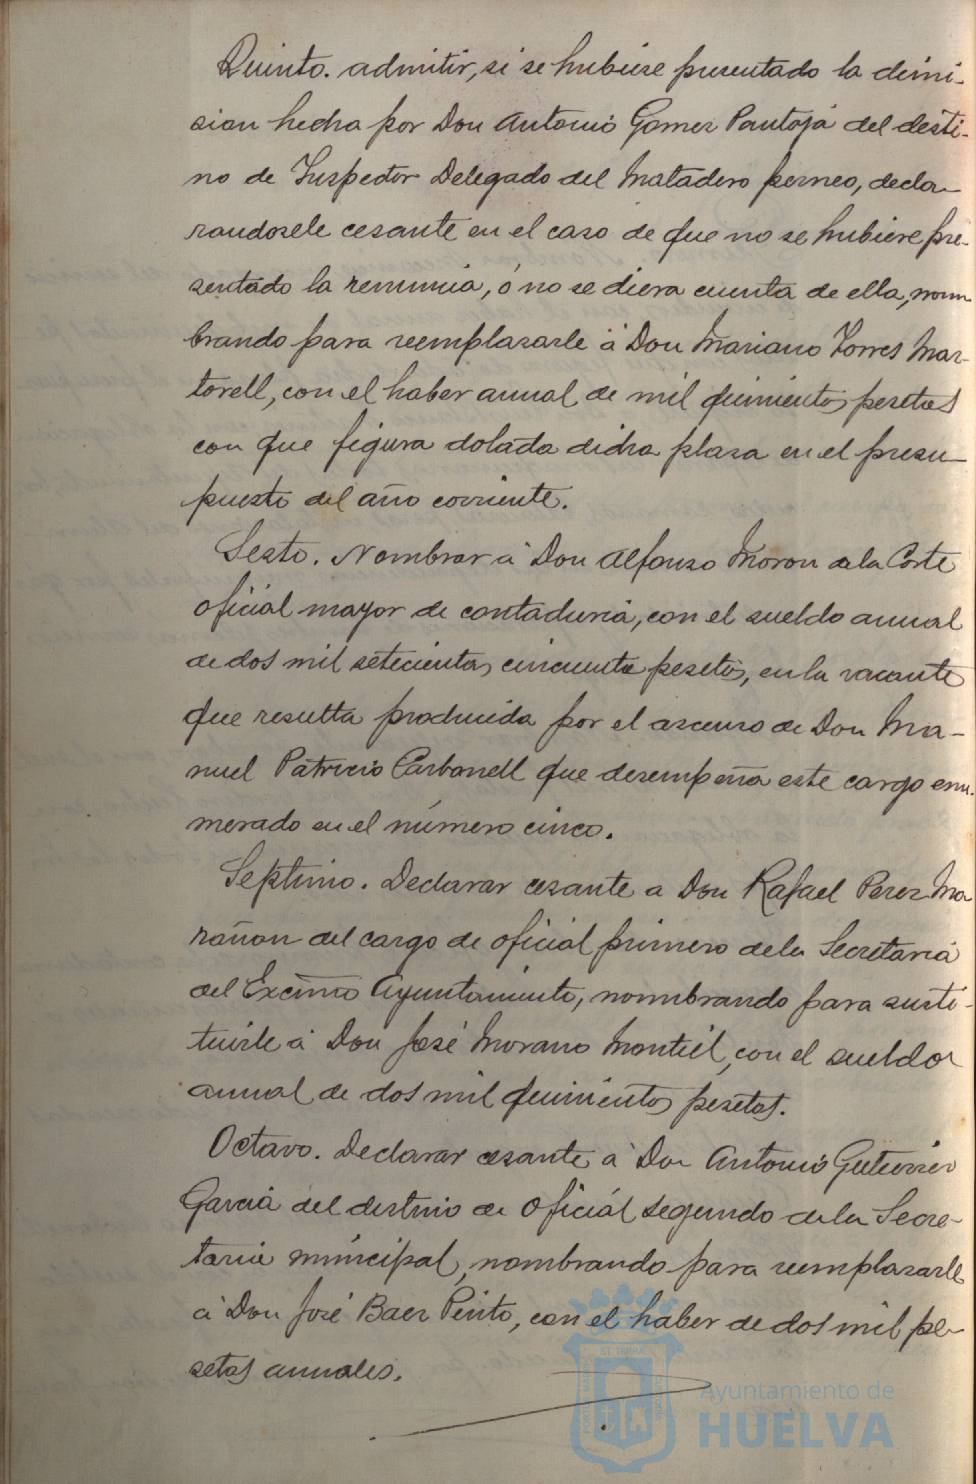 Quinto. admitir, si se hubiese presentado la dimi-
sion hecha por Don Antonio Gomez Pantoja del desti-
no de Inspector Delegado del Matadero perneo, decla-
randosele cesante en el caso de que no se hubiere pre-
sentado la renuncia, ó no se diera cuenta de ella, nom-
brando para reemplazarle á Don Mariano Torres Mar-
torell, con el haber anual de mil quinientas pesetas
con que figura dotada dicha plaza en el presu-
puesto del año corriente.
Sesto. Nombrar á Don Alfonso Moron de la Corte
oficial mayor de contaduria, con el sueldo anual
de dos mil setecientas cincuenta pesetas, en la vacante
que resulta producida por el ascenso de Don Ma-
nuel Patricio Carbonell que desempeña este cargo enu-
merado en el número cinco.
Septimo. Declarar cesante a Don Rafael Perez Ma
rañon del cargo de oficial primero de la Secretaria
del Excmo Ayuntamiento, nombrando para susti-
tuirle á Don José Morano Montiel, con el sueldo
anual de dos mil quinientas pesetas.
Octavo. Declarar cesante á Don Antonio Gutierrez
Garcia del destino de Oficial segundo de la Secre-
taria municipal, nombrando para reemplazarle
á Don José Baez Pinto, con el haber de dos mil pe-
setas anuales.
Ayuntamiento de
HUELVA